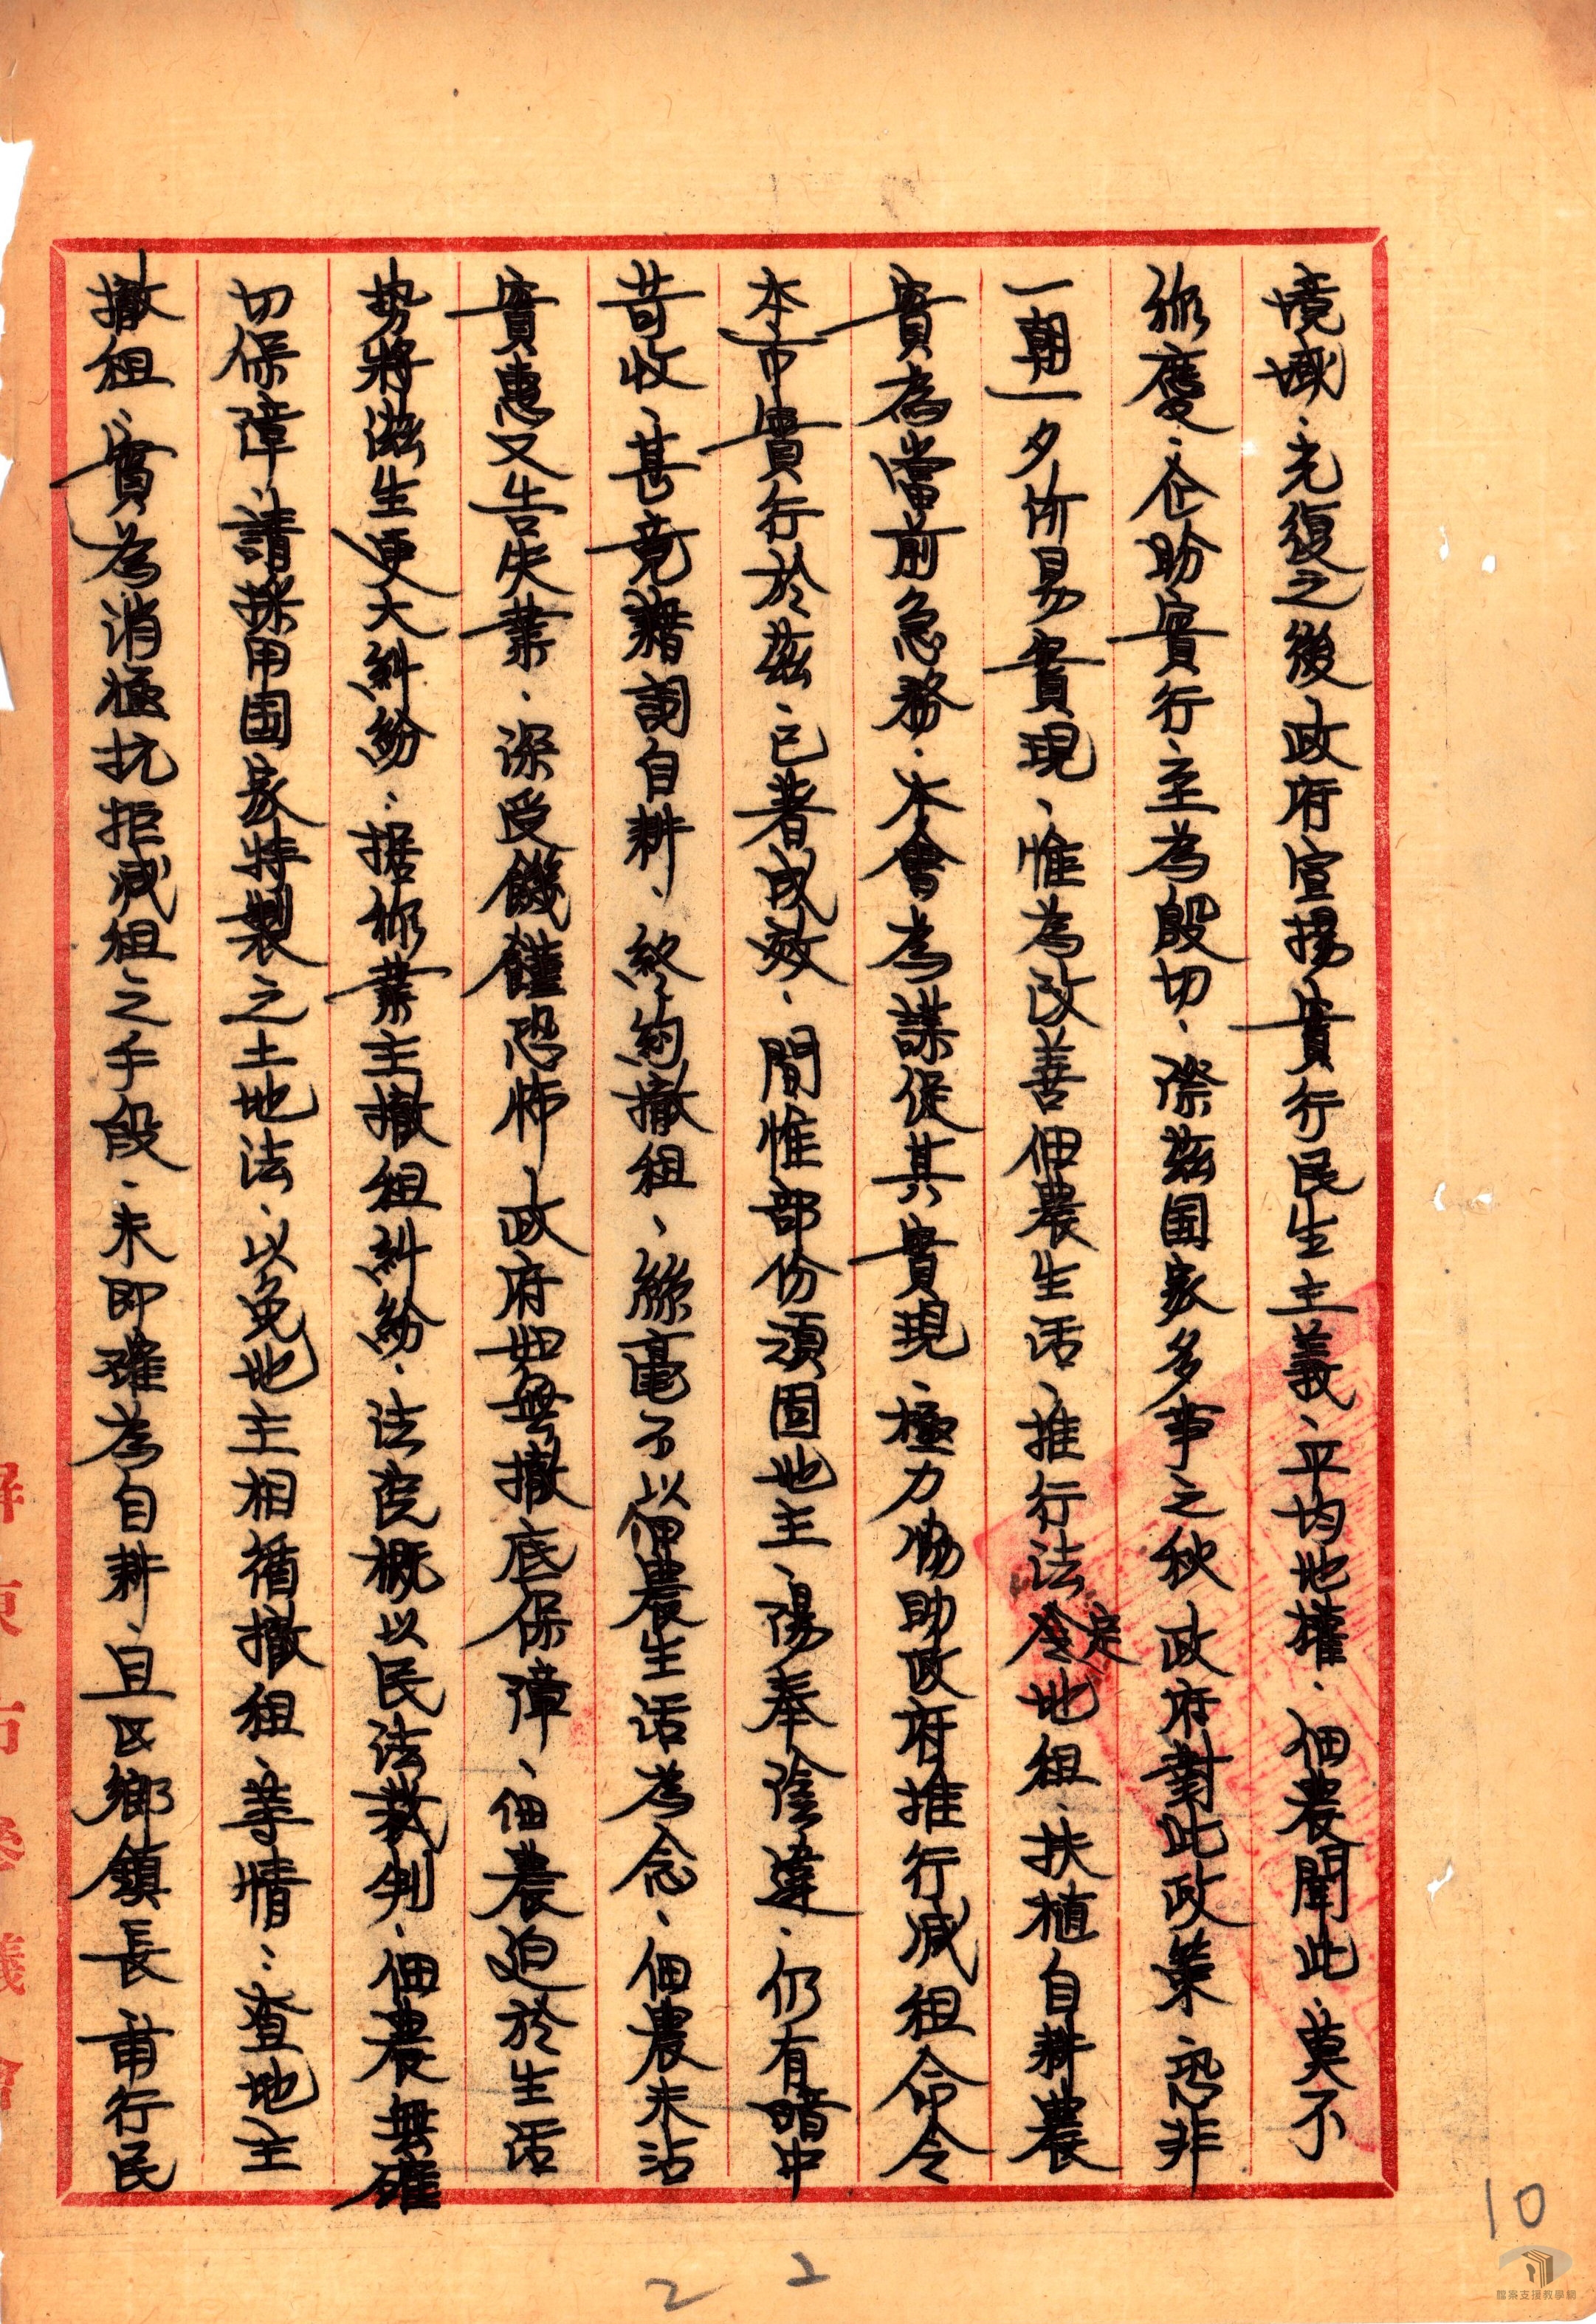 境域、光復之後政府宣揚實行民生主義、平均地權、佃農聞此、莫不
称慶、企盼實行、至為殷切、際茲国家多事之秋政府對此政策、恐非
一朝一夕所易實現、惟為改善佃農生活、推行法定地租、扶植自耕農
實為當前急務、本會為謀促其實現、極力協助政府推行減租命令
本市實行於茲、已著成效、間惟部份頑固地主、陽奉陰違、仍有暗中
苛收、甚竟藉詞自耕、終約撤租、絲毫不以佃農生活為念、佃農未沾
實惠又告失業、深受饑饉恐怖、政府如無撤底保障、佃農迫於生活
势將滋生更大糾紛：据称業主撤租糾紛、法院概以民法裁判、佃農無確
切保障、請採用国家特製之土地法、以免地主相循撤租、等情：查地主
撤租、實為消極抗拒減租之手段、未即確為自耕、且区鄉鎮長甫行民
屏東市參議會
10
2 2
檔案支援教學網